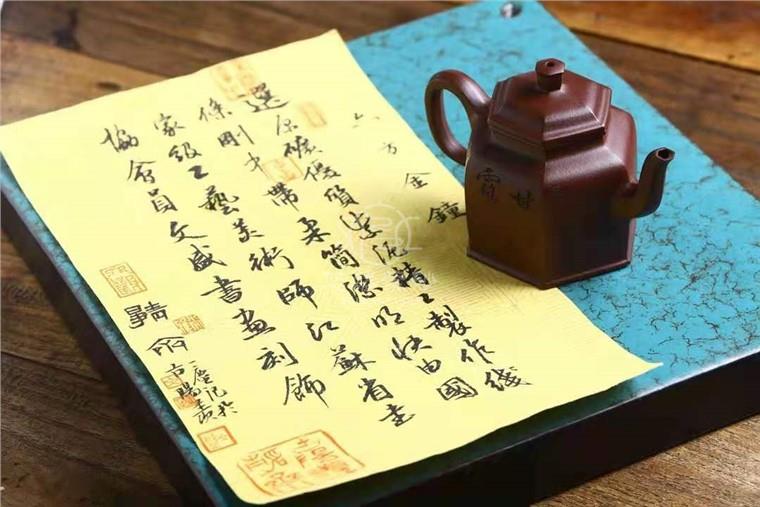 六方金鐘
選原礦優質紫泥精工製作线
條剛中帶柔簡潔明快由國
家級工藝美術師江蘇省書
協會員文盛書畫刻飾
記於
古陽羨
甘